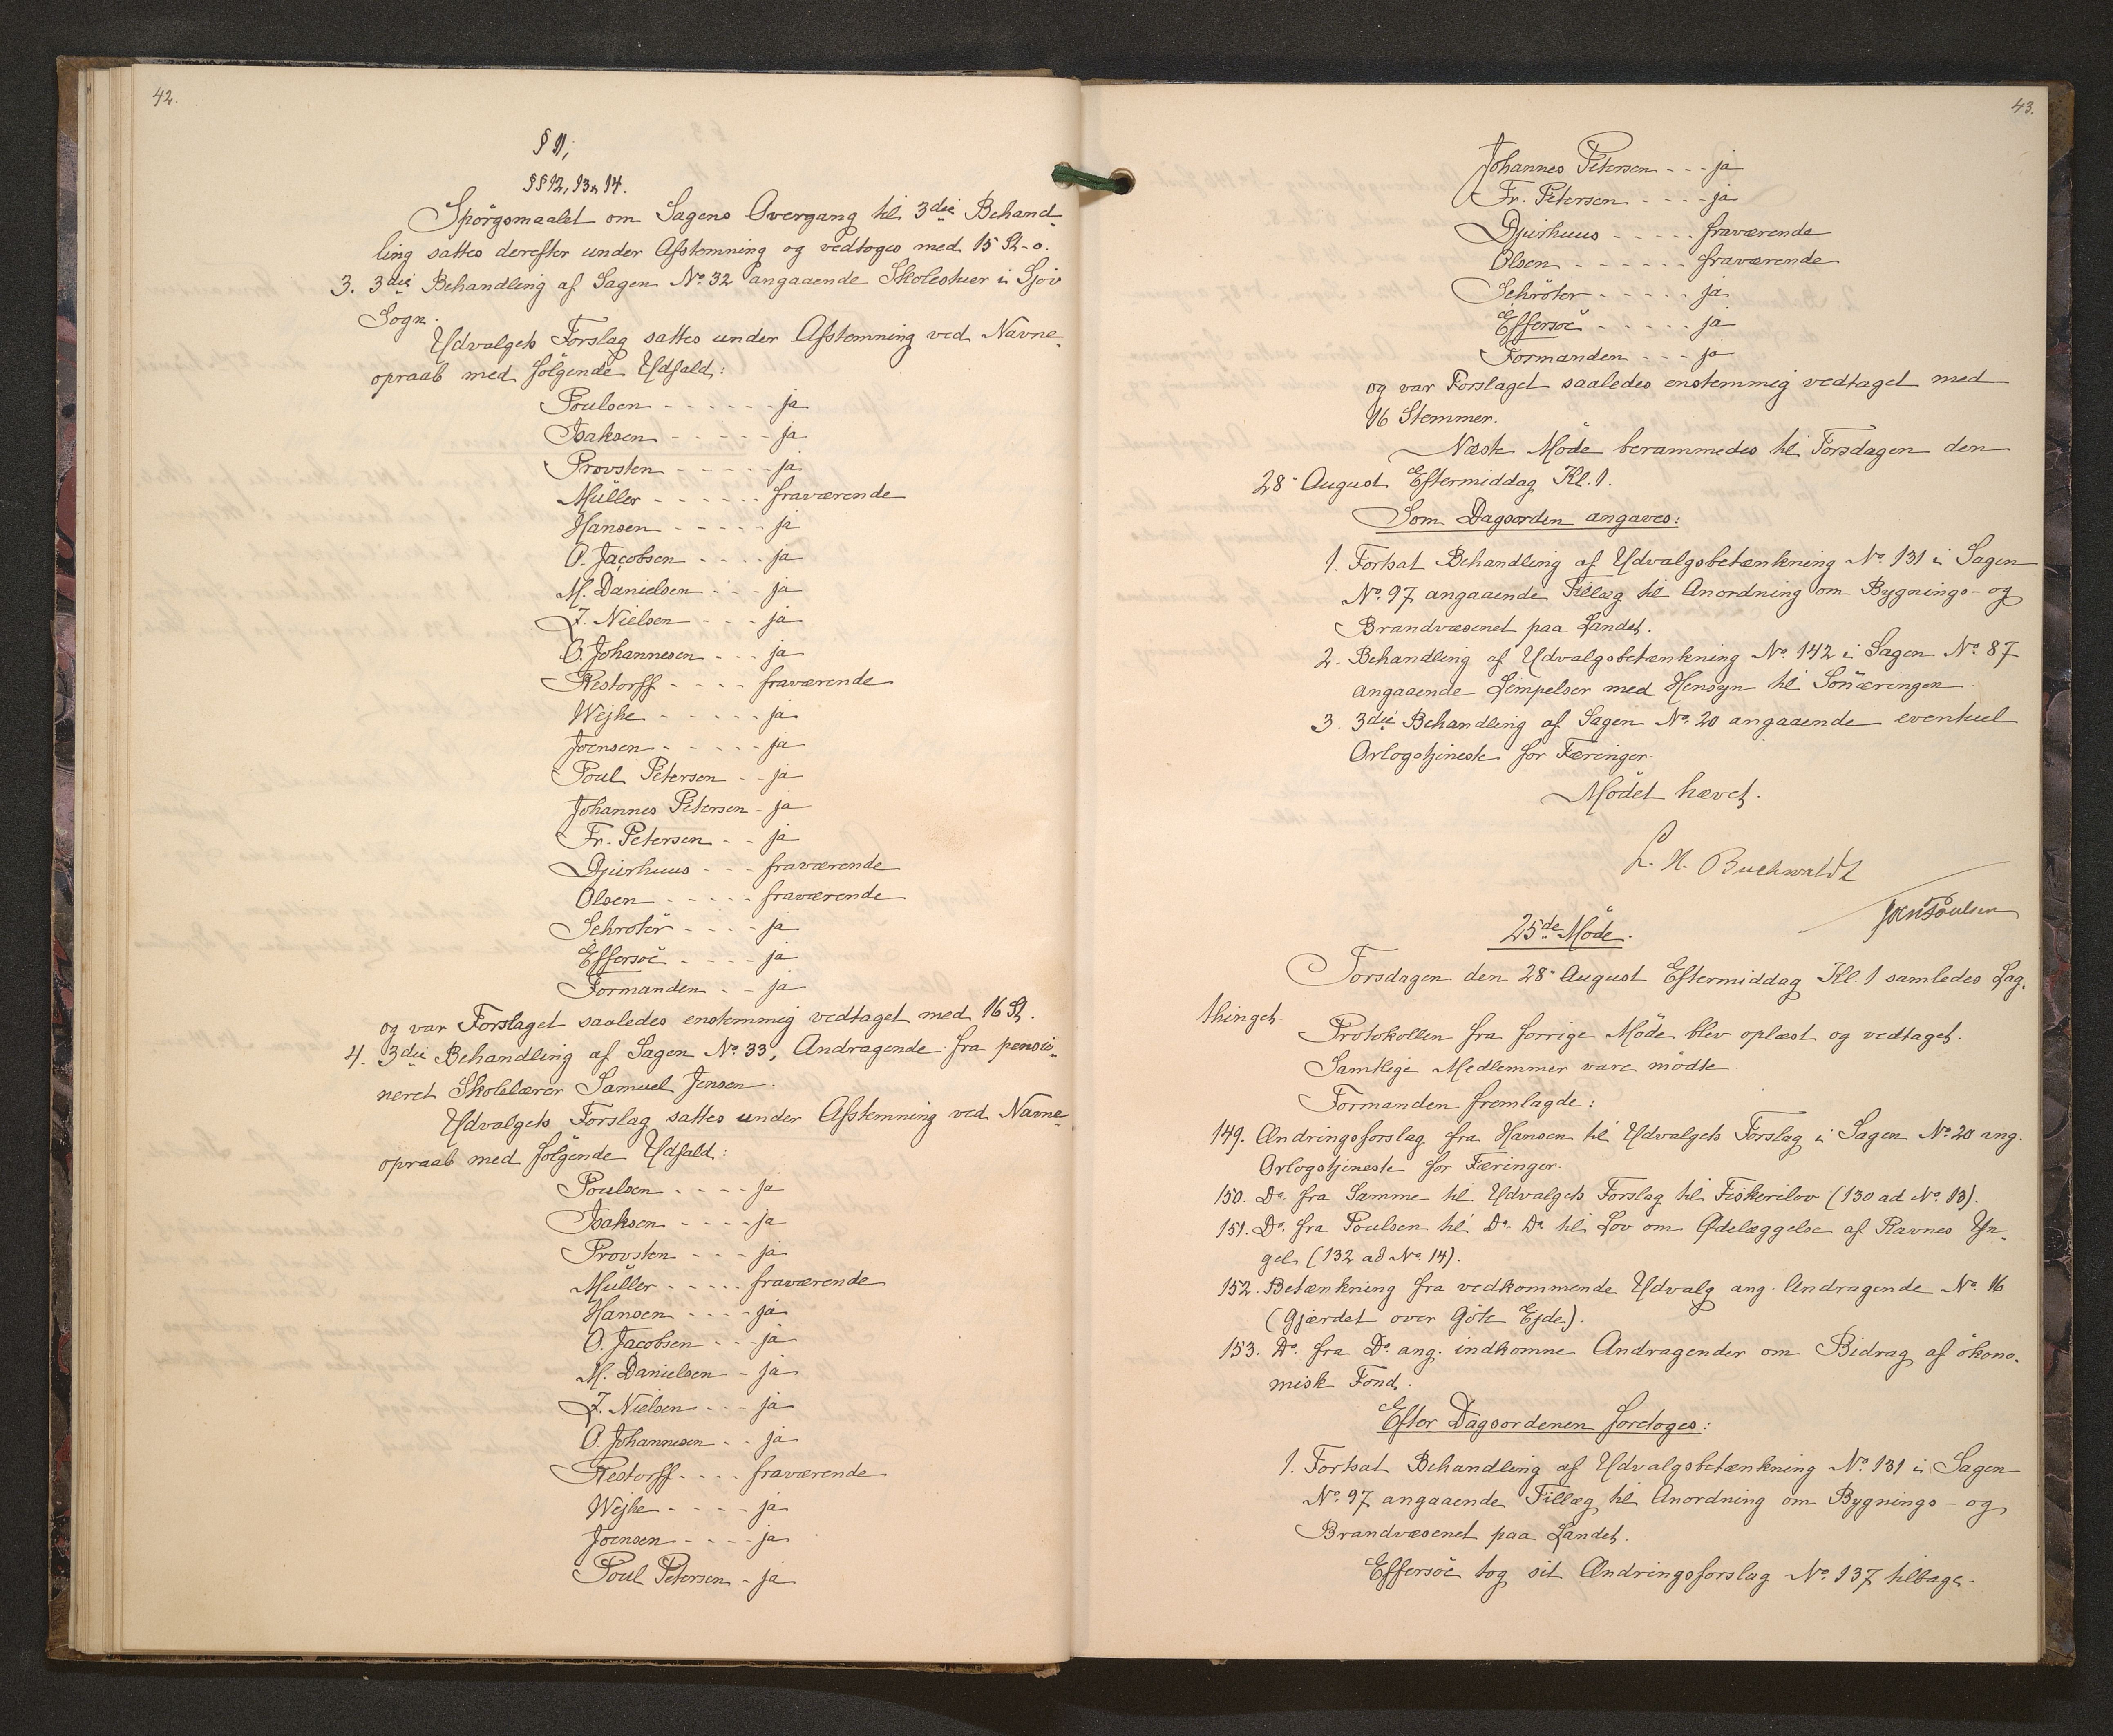 42.
§ 11,
§§ 12, 13 & 14.
Spörgsmaalet om Sagens Overgang til 3die Behand-
ling sattes derefter under Afstemning og vedtoges med 15 St-0.
3. 3die Behandling af Sagen No 32 angaaende Skolestuer i Sjov
Sogn.
Udvalgets Forslag sattes under Afstemning ved Navne-
opraab med følgende Udfald:
Poulsen - - - - - - ja
Isaksen - - - - - ja
Provsten - - - - - ja
Müller - - - - - - fraværende
Hansen - - - - - ja
O. Jacobsen - - - - ja
M. Danielsen - - - ja
J. Nielsen - - - ja
O. Johannesen - - - ja
Restorff - - - - fraværende
Wejhe - - - - - ja
Joensen - - - - - ja
Poul Petersen - - ja
Johannes Petersen - ja
Fr. Petersen - - ja
Djurhuus - - - fraværende
Olsen - - - - - fraværende
Schrøter - - - - ja
Effersöe - - - - ja
Formanden - - ja
og var Forslaget saaledes enstemmig vedtaget med 16 St.
4. 3die Behandling af Sagen No 33, Andragende fra pensio-
neret Skolelærer Samuel Jensen.
Udvalgets Forslag sattes under Afstemning ved Navne-
opraab med følgende Udfald:
Poulsen - - - - ja
Isaksen - - - - ja
Provsten - - - ja
Müller - - - - - fraværende
Hansen - - - - ja
O. Jacobsen - - - ja
M. Danielsen - ja
J. Nielsen - - - ja
O. Johannesen - - ja
Restorff - - - - fraværende
Wejhe - - - - ja
Joensen - - - - ja
Poul Petersen - ja
43.
Johannes Petersen - - - ja
Fr. Petersen - - - - ja
Djurhuus - - - - - fraværende
Olsen - - - - - - fraværende
Schröter - - - - - ja
Effersöe - - - - - ja
Formanden - - - ja
og var Forslaget saaledes enstemmig vedtaget med
16 Stemmer.
Næste Möde berammedes til Torsdagen den
28- August Eftermiddag Kl. 1.
Som Dagsorden angaves:
1. Fortsat Behandling af Udvalgsbetænkning No. 131 i Sagen
No. 97 angaaende Tillæg til Anordning om Bygnings- og
Brandvæsenet paa Landet.
2. Behandling af Udvalgsbetænkning No. 142 i Sagen No. 87
angaaende Lempelser med Hensyn til Sönæringen
3. 3die Behandling af Sagen No. 20 angaaende eventuel
Orlogstjeneste for Færinger.
Mödet hævet.
L. H. Buchwaldt
Joen Poulsen
25de Möde.
Torsdagen den 28- August Eftermiddag Kl. 1 samledes Lag-
thinget.
Protokollen fra forrige Möde blev oplæst og vedtaget.
Samtlige Medlemmer vare mödte.
Formanden fremlagde:
149. Ændringsforslag fra Hansen til Udvalgets Forslag i Sagen No. 20 ang.
Orlogstjeneste for Færinger.
150. Do. fra Samme til Udvalgets Forslag til Fiskerilov (130 ad No. 13).
151. Do. fra Poulsen til Do. Do. til Lov om Ødelæggelse af Ravnes Yn-
gel (132 ad No. 14).
152. Betænkning fra vedkommende Udvalg ang. Andragende No. 16
(Gjærdet over Göte Ejde).
153. Do. fra Do. ang. indkomne Andragender om Bidrag af ökono-
misk Fond.
Efter Dagsordenen foretoges:
1. Fortsat Behandling af Udvalgsbetænkning No. 131 i Sagen
No. 97 angaaende Tillæg til Anordning om Bygnings- og
Brandvæsenet paa Landet.
Effersöe tog sit Ændringsforslag No. 137 tilbage.